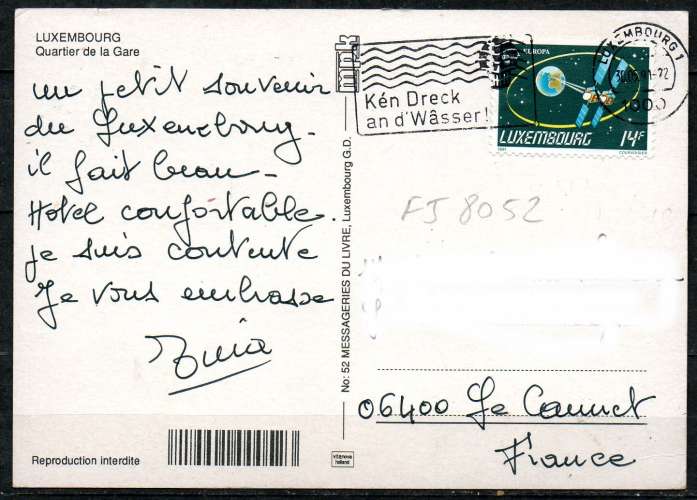 LUXEMBOURG
Quartier de la Gare
un petit souvenir
du Luxembourg -
il fait beau -
Hotel confortable.
je suis contente
Je vous embrasse
No: 52 MESSAGERIES DU LIVRE, Luxembourg G.D.
Reproduction interdite
mpk
Kën Dreck
an d'Wâsser!
EUROPA
LUXEMBOURG 14F
1991
COURVOISIER
LUXEMBOURG 1
1000
FJ 8052
06400 Le Cannet
France